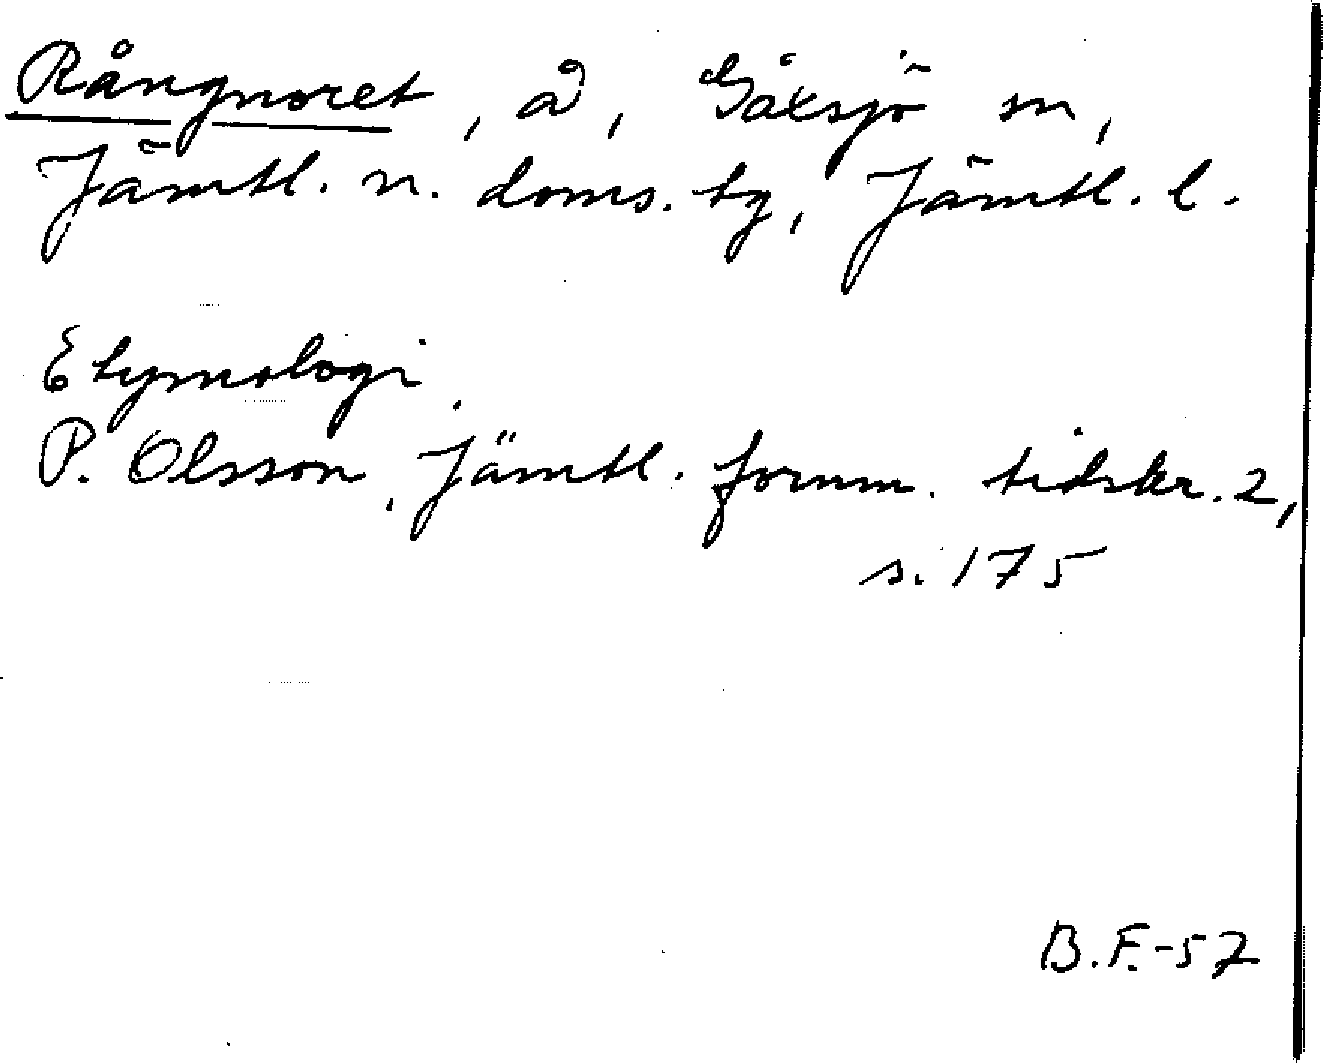 Rångnoret, å, Gåxsjö sn,
Jämtl. n. doms. tg, Jämtl. l.
Etymologi.
P. Olsson, Jämtl. fornm. tidskr. 2,
s. 175
B.F.-57